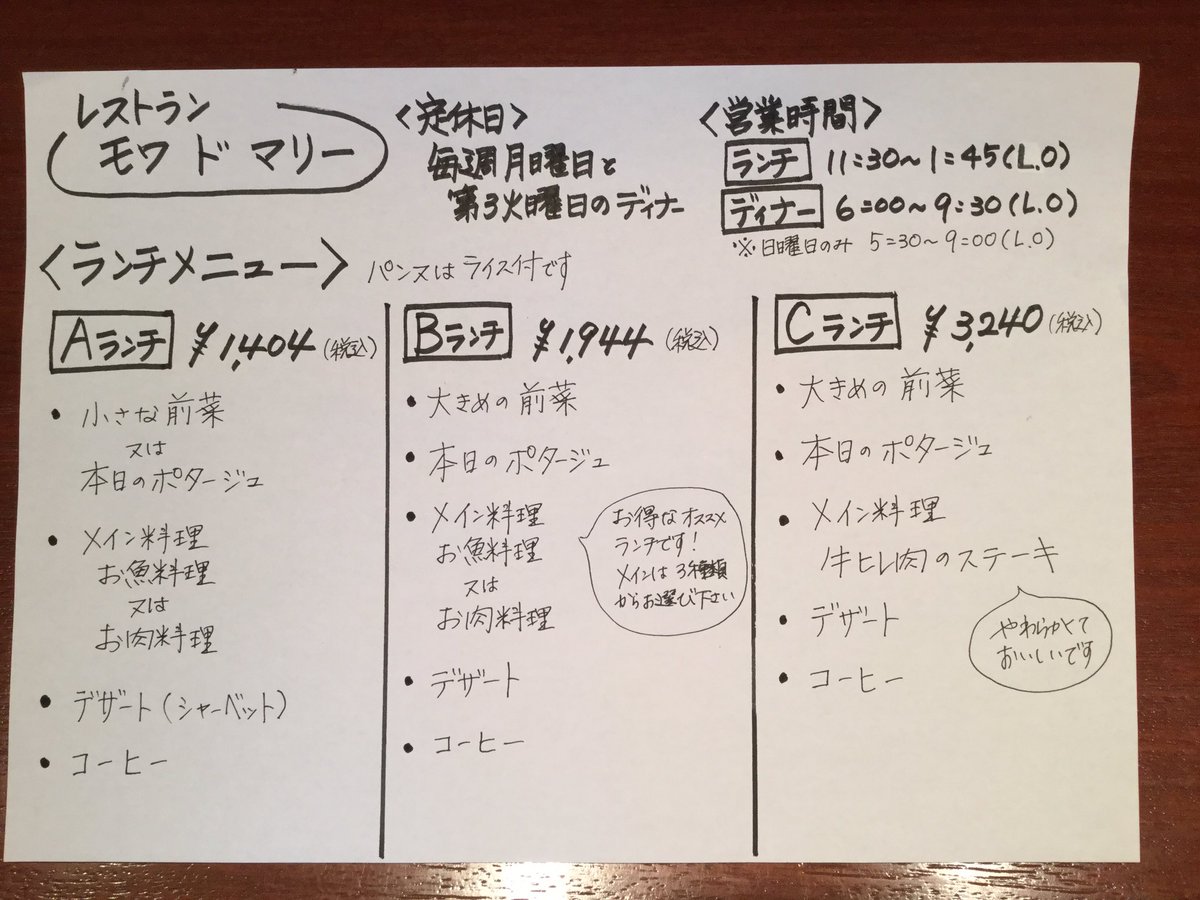 レストラン
モワ ド マリー
〈定休日〉
毎週月曜日と
第3火曜日のディナー
〈営業時間〉
ランチ 11:30～1:45(L.O)
ディナー 6:00～9:30(L.O)
※日曜日のみ 5:30～9:00(L.O)
〈ランチメニュー〉 パン又はライス付です
Aランチ ¥1,404(税込)
・小さな前菜
又は
本日のポタージュ
・メイン料理
お魚料理
又は
お肉料理
・デザート(シャーベット)
・コーヒー
Bランチ ¥1,944(税込)
・大きめの前菜
・本日のポタージュ
・メイン料理
お魚料理
又は
お肉料理
お得なオススメ
ランチです!
メインは3種類
からお選び下さい
・デザート
・コーヒー
Cランチ ¥3,240(税込)
・大きめの前菜
・本日のポタージュ
・メイン料理
牛ヒレ肉のステーキ
やわらかくて
おいしいです
・デザート
・コーヒー